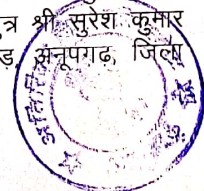 त्र श्री सुरेश कुमार
ड़, अनूपगढ़, जिला